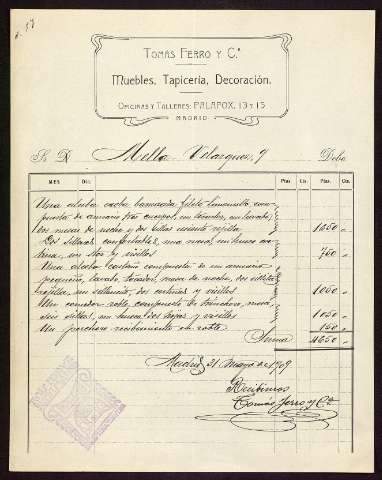 TOMÁS FERRO Y C.ª
Muebles, Tapicería, Decoración.
OFICINAS Y TALLERES: PALAFOX, 13 Y 15
MADRID
Sr. D. Mella Velazquez, 9 Debe
MES Día. Ptas. Cts. Ptas. Cts.
Una alcoba caoba barnizada filete limoncillo com-
puesta de armario tres cuerpos, un tocador, un lavabo,
dos mesas de noche y dos sillas asiento rejilla 1650
Dos sillones confortables, una mesa, un
un stor y visillos 750
Una alcoba castaño compuesta de un armario
pequeño, lavabo, tocador, mesa de noche, dos sillas
rejilla, un silloncito, dos cortinas y visillos 1050
Un comedor roble compuesto de trinchero, mesa,
seis sillas, un dos hojas y visillos 1050
Un perchero recibimiento en roble 150
Suma 4650
Madrid 31 Mayo de 1909
Recibimos
Tomás Ferro y Cª